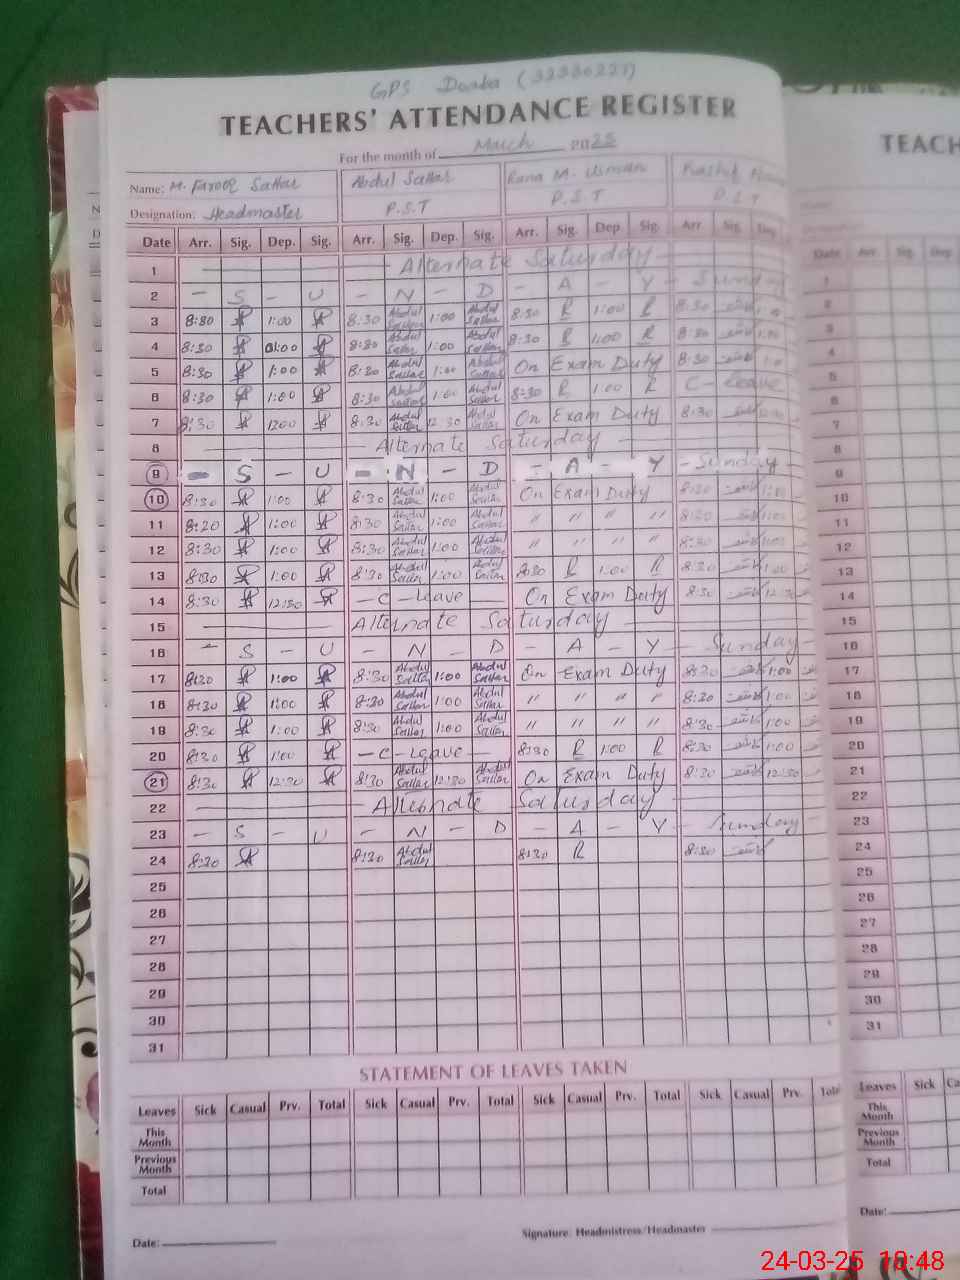 GPS Doaba (32230227)
TEACHERS' ATTENDANCE REGISTER
TEACH
For the month of March 2025
Name: M. Farooq Sattar Abdul Sattar Rana M. Usman Kashif
Designation: Headmaster P.S.T P.S.T P.S.T
Date Arr. Sig. Dep. Sig. Arr. Sig. Dep. Sig. Arr. Sig. Dep Sig. Arr Sig. Dep
1 Alternate Saturday
2 - S - U - N - D - A - Y - Sunday
3 8:30 1:00 8:30 Abdul Sattar 1:00 Abdul Sattar 8:30 R 1:00 R 8:30 1:00
4 8:30 01:00 8:30 Abdul Sattar 1:00 Abdul Sattar 8:30 R 1:00 R 8:30 1:00
5 8:30 1:00 8:30 Abdul Sattar 1:00 Abdul Sattar On Exam Duty 8:30 1:00
6 8:30 1:00 8:30 Abdul Sattar 1:00 Abdul Sattar 8:30 R 1:00 R C - leave
7 8:30 12:00 8:30 Abdul Sattar 12:30 Abdul Sattar On Exam Duty 8:30
8 Alternate Saturday
9 - S - U - N - D - A - Y - Sunday -
10 8:30 1:00 8:30 Abdul Sattar 1:00 Abdul Sattar On Exam Duty 8:30 1:00
11 8:20 1:00 8:30 Abdul Sattar 1:00 Abdul Sattar " " " " 8:30 1:00
12 8:30 1:00 8:30 Abdul Sattar 1:00 Abdul Sattar " " " " 8:30 1:00
13 8:30 1:00 8:30 Abdul Sattar 1:00 Abdul Sattar 8:30 R 1:00 R 8:30 1:00
14 8:30 12:30 - C - Leave On Exam Duty 8:30 12:30
15 Alternate Saturday
16 - S - U - N - D - A - Y - Sunday -
17 8:30 1:00 8:30 Abdul Sattar 1:00 Abdul Sattar On Exam Duty 8:30 1:00
18 8:30 1:00 8:30 Abdul Sattar 1:00 Abdul Sattar " " " " 8:30 1:00
19 8:30 1:00 8:30 Abdul Sattar 1:00 Abdul Sattar " " " " 8:30 1:00
20 8:30 1:00 - C - Leave - 8:30 R 1:00 R 8:30 1:00
21 8:30 12:30 8:30 Abdul Sattar 12:30 Abdul Sattar On Exam Duty 8:30 12:30
22 Alternate Saturday
23 - S - U - N - D - A - Y - Sunday -
24 8:30 8:30 Abdul Sattar 8:30 R 8:30
25
26
27
28
29
30
31
STATEMENT OF LEAVES TAKEN
Leaves Sick Casual Prv. Total Sick Casual Prv. Total Sick Casual Prv. Total Sick Casual Prv. Total
This Month
Previous Month
Total
Date:
Signature: Headmistress/Headmaster
Date Arr. Sig. Dep
1
2
3
4
5
6
7
8
9
10
11
12
13
14
15
16
17
18
19
20
21
22
23
24
25
26
27
28
29
30
31
Leaves Sick Ca
This Month
Previous Month
Total
Date: